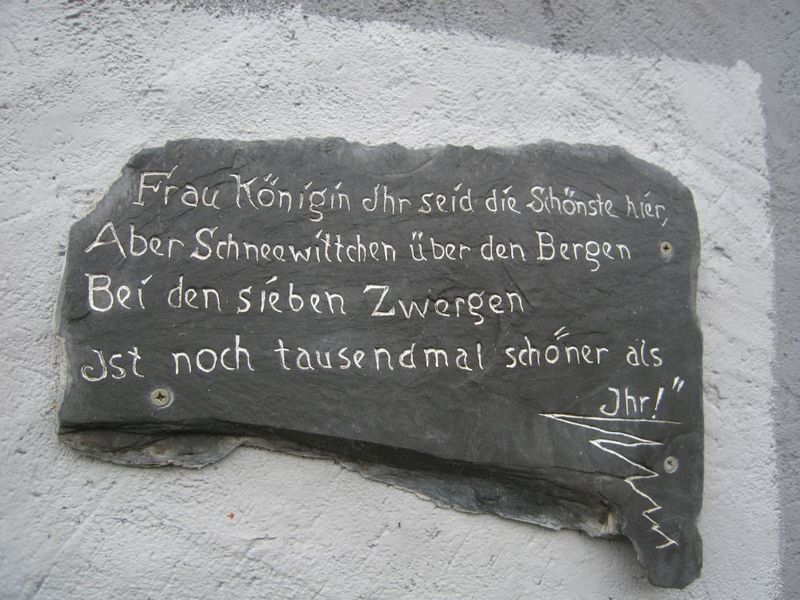 Frau Königin Ihr seid die Schönste hier,
Aber Schneewittchen über den Bergen
Bei den sieben Zwergen
Ist noch tausendmal schöner als
Ihr!"